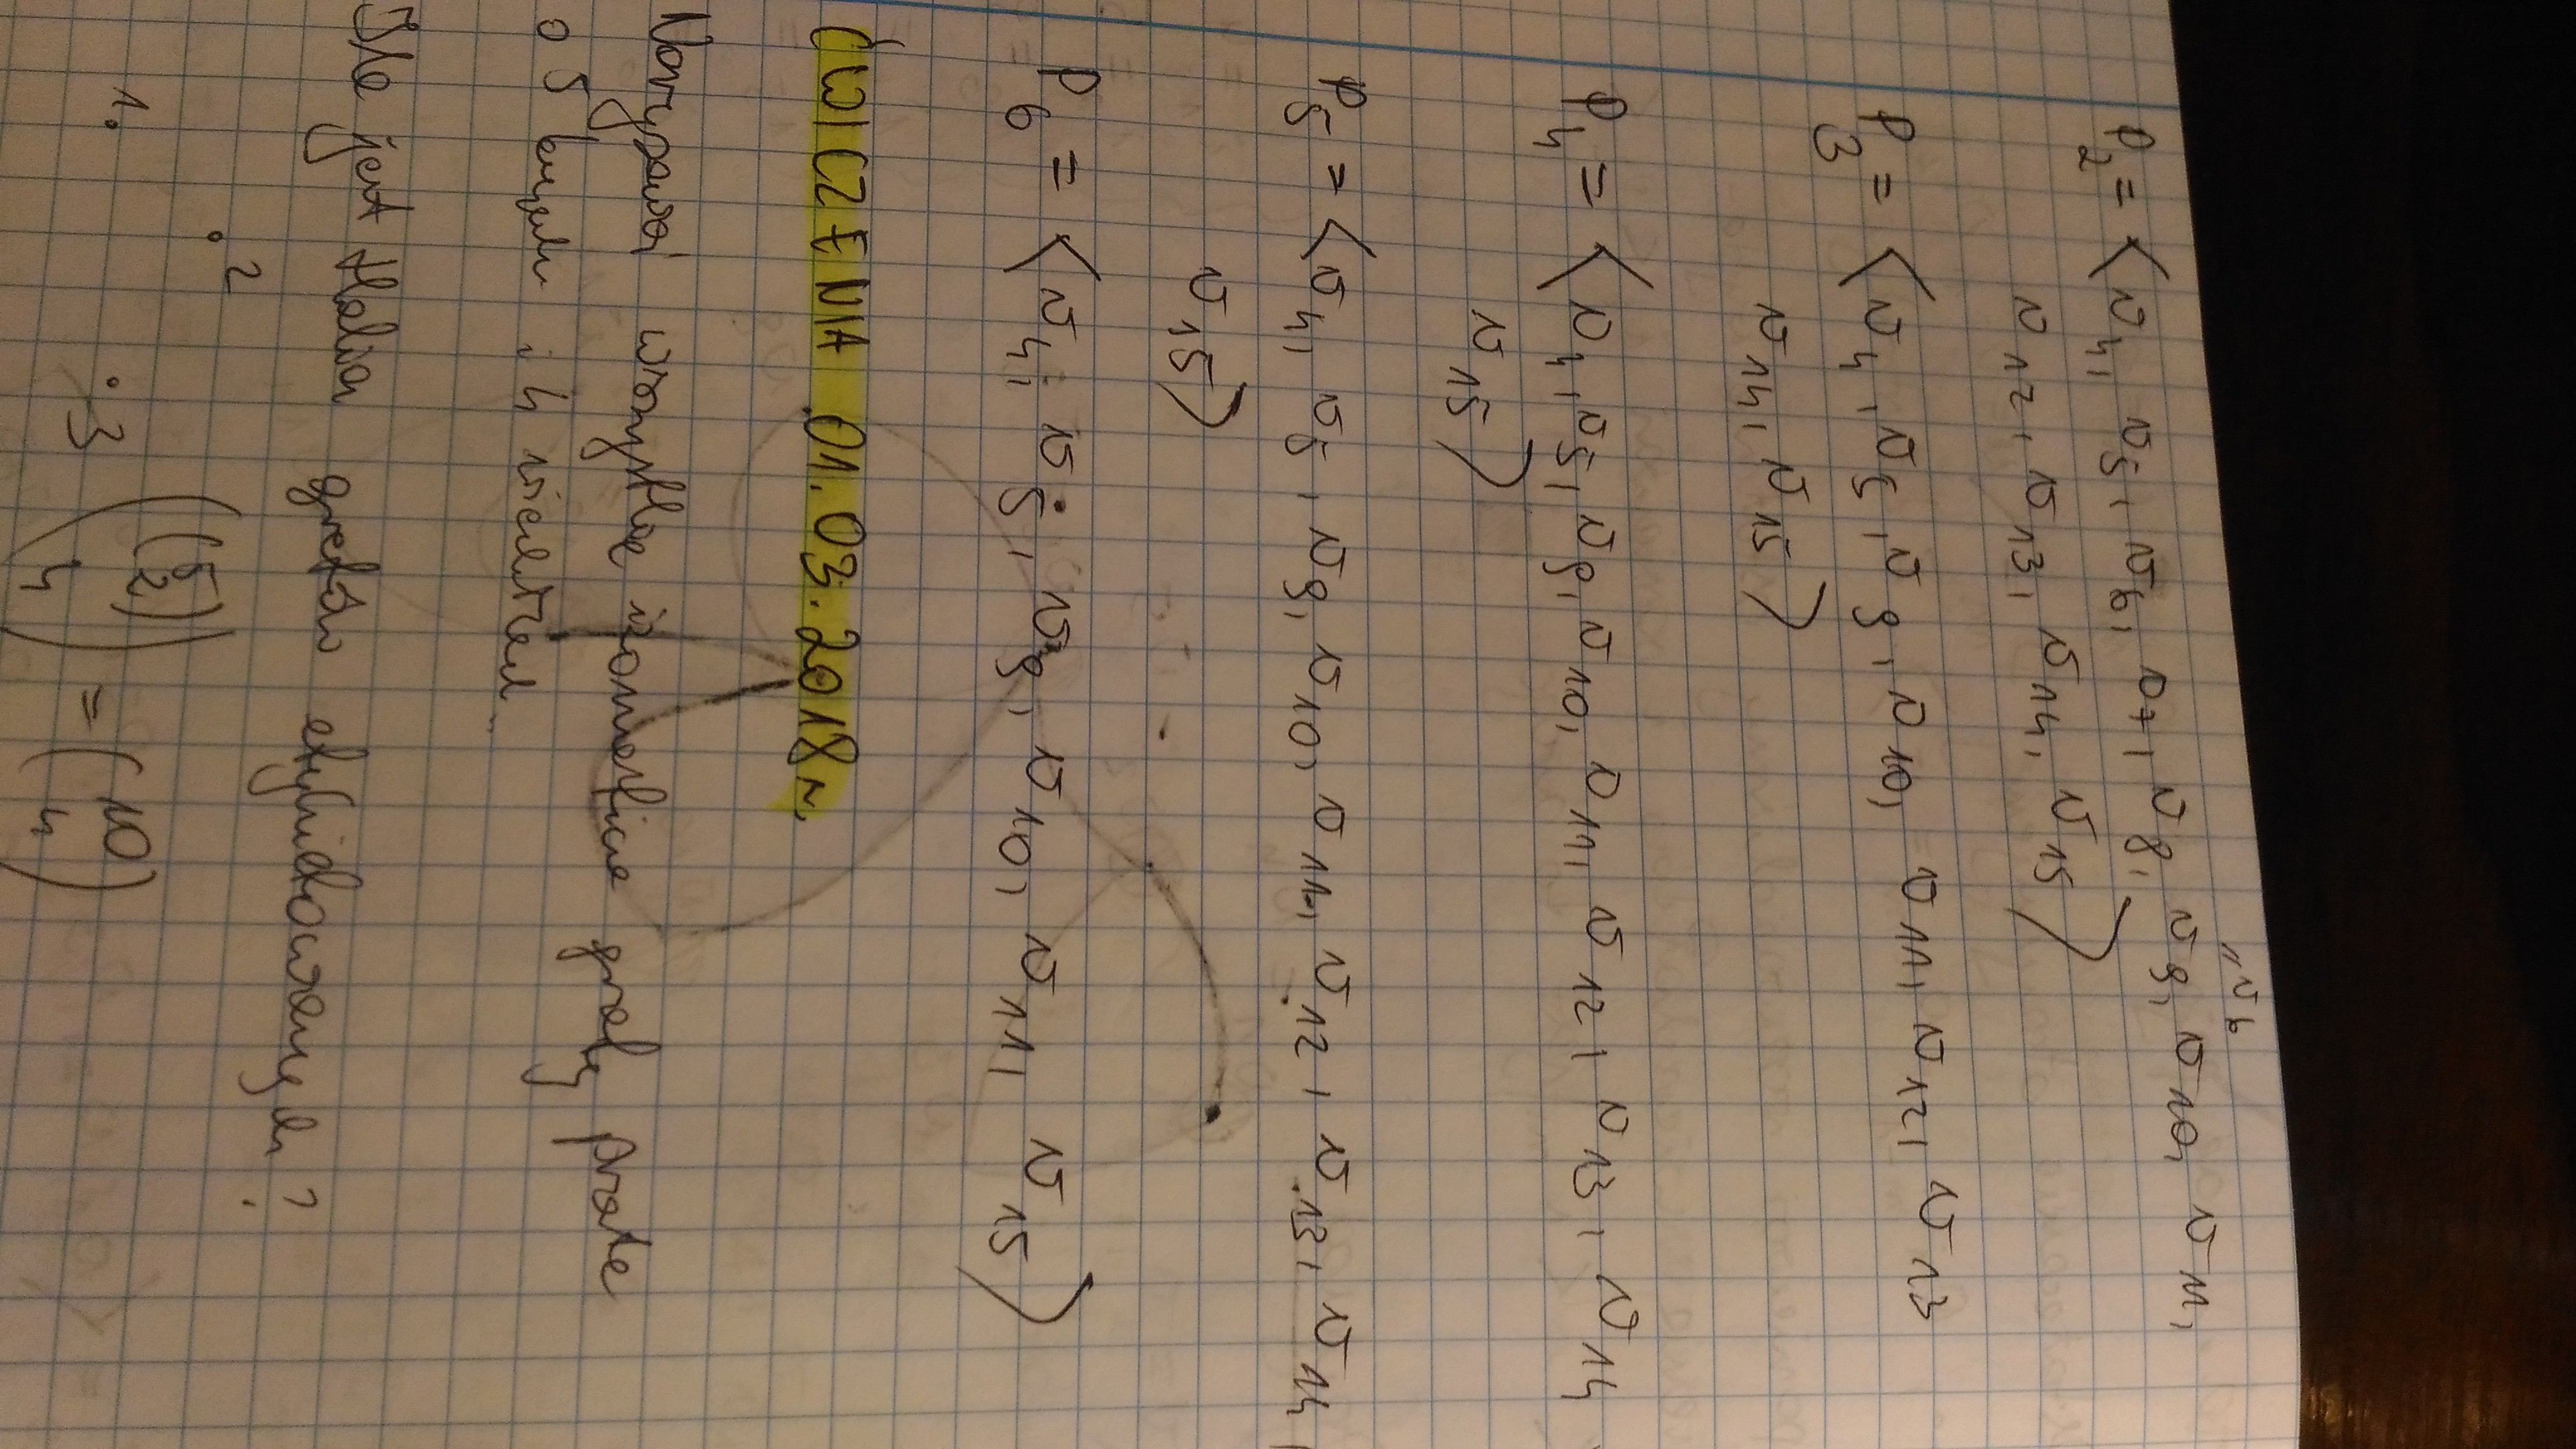 "v6
P2 = ⟨v4, v5, v6, v7, v8, v9, v10, v11,
v12, v13, v14, v15⟩
P3 = ⟨v4, v5, v9, v10, v11, v12, v13
v14, v15⟩
P4 = ⟨v4, v5, v9, v10, v11, v12, v13, v14
v15⟩
P5 = ⟨v4, v5, v9, v10, v11, v12, v13, v14,
v15⟩
P6 = ⟨v4, v5, v9, v10, v11, v15⟩
ĆWICZENIA 01.03.2018r.
Narysować wszystkie grafy proste
o 5 i 4
Ile jest takich grafów etykietowanych?
2
1 3 ((5 2) 4) = (10 4)